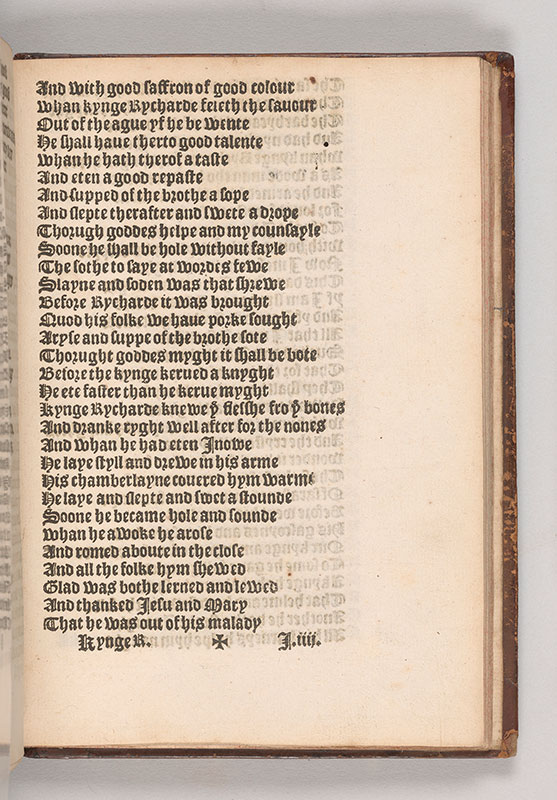 And with good saffron of good colour
whan kynge Rycharde feleth the sauour
Out of the ague yf he be wente
He shall haue therto good talente
whan he hath therof a taste
And eten a good repaste
And supped of the brothe a sope
And slepte therafter and swete a drope
Thorugh goddes helpe and my counsayle
Soone he shall be hole without fayle
The sothe to saye at wordes fewe
Slayne and soden was that shrewe
Before Rycharde it was brought
Quod his folke we haue porke sought
Aryse and suppe of the brothe sote
Thorught goddes myght it shall be bote
Before the kynge kerued a knyght
He ete faster than he kerue myght
kynge Rycharde knewe yͤ flesshe fro yͤ bones
And dranke ryght well after for the nones
And whan he had eten Inowe
He laye styll and drewe in his arme
His chamberlayne couered hym warme
He laye and slepte and swet a stounde
Soone he became hole and sounde
whan he awoke he arose
And romed aboute in the close
And all the folke hym shewed
Glad was bothe lerned and lewed
And thanked Jesu and Mary
That he was out of his malady
Kynge R. ✠ J.iiij.